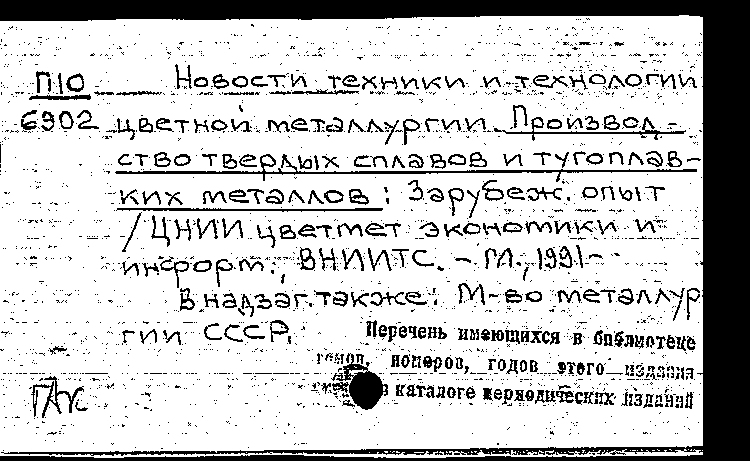 П10 Новости техники и технологии
6902 цветной металлургии. Производ-
ство твердых сплавов и тугоплав-
ких металлов : Зарубеж. опыт
/ ЦНИИ цветмет экономики и
информ., ВНИИТС. - М., 1991-
В надзаг. также: М-во металлур
гии СССР.
Перечень имеющихся в библиотеке
томов, номеров, годов этого издания
в каталоге периодических изданий